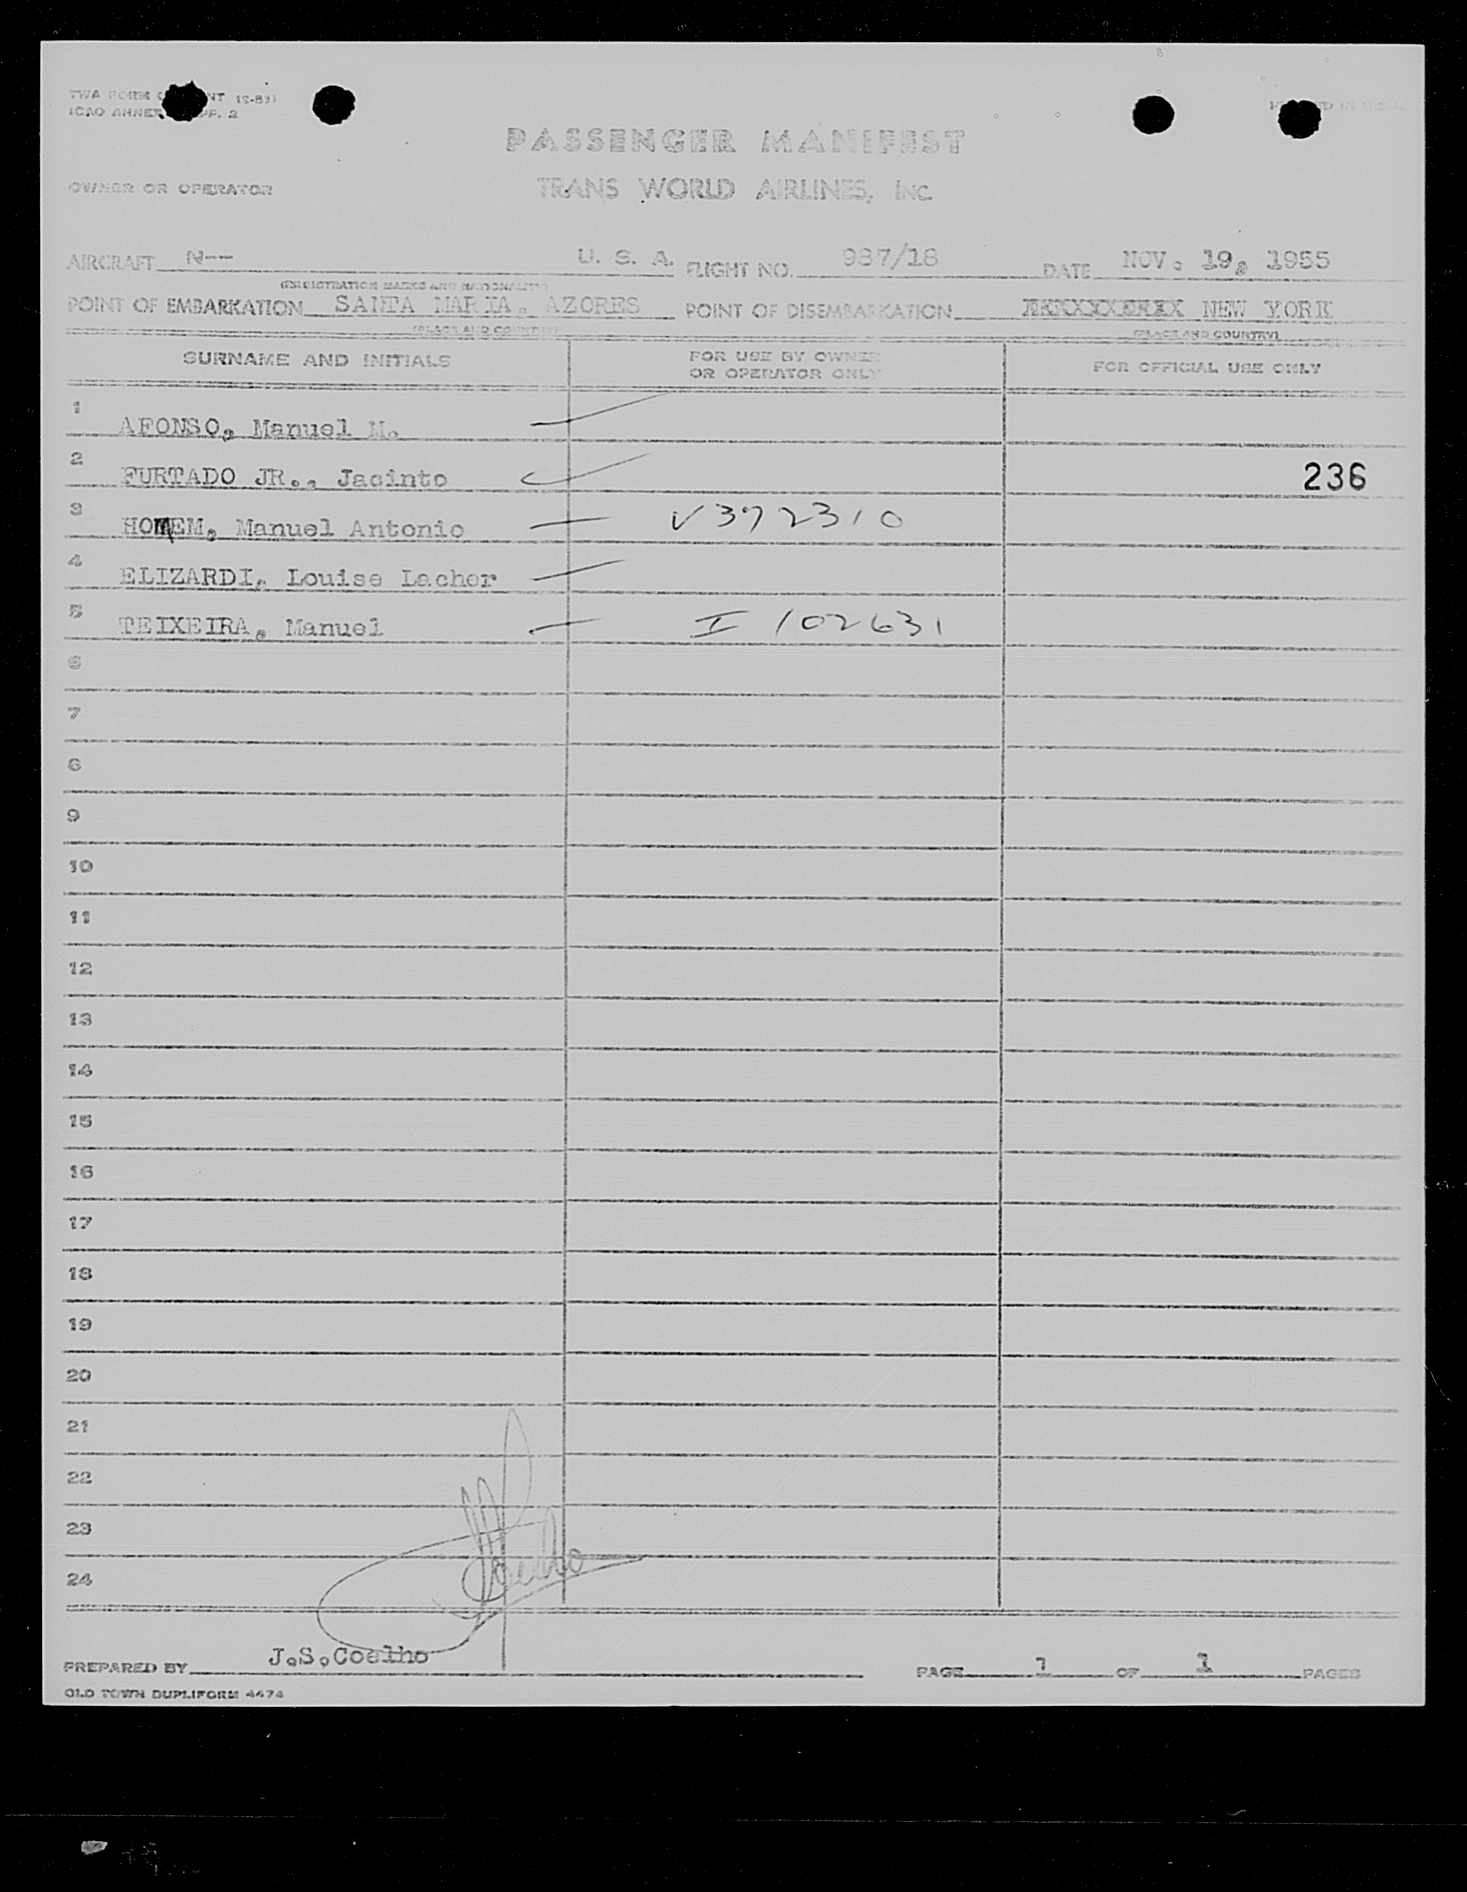 TWA FORM NT (2-53)
ICAO ANNEX PP. 2
PASSENGER MANIFEST
OWNER OR OPERATOR TRANS WORLD AIRLINES, INC.
AIRCRAFT N-- U. S. A. FLIGHT NO. 937/18 DATE NOV. 19, 1955
(REGISTRATION MARKS AND NATIONALITY)
POINT OF EMBARKATION SANTA MARIA, AZORES POINT OF DISEMBARKATION NEW YORK
(PLACE AND COUNTRY) (PLACE AND COUNTRY)
SURNAME AND INITIALS FOR USE BY OWNER OR OPERATOR ONLY FOR OFFICIAL USE ONLY
1 AFONSO, Manuel M.
2 FURTADO JR., Jacinto 236
3 HOMEM, Manuel Antonio V372310
4 ELIZARDI, Louise Lacher
5 TEIXEIRA, Manuel I 102631
6
7
8
9
10
11
12
13
14
15
16
17
18
19
20
21
22
23
24
PREPARED BY J.S.Coelho PAGE 1 OF 1 PAGES
OLD TOWN DUPLIFORM 4474